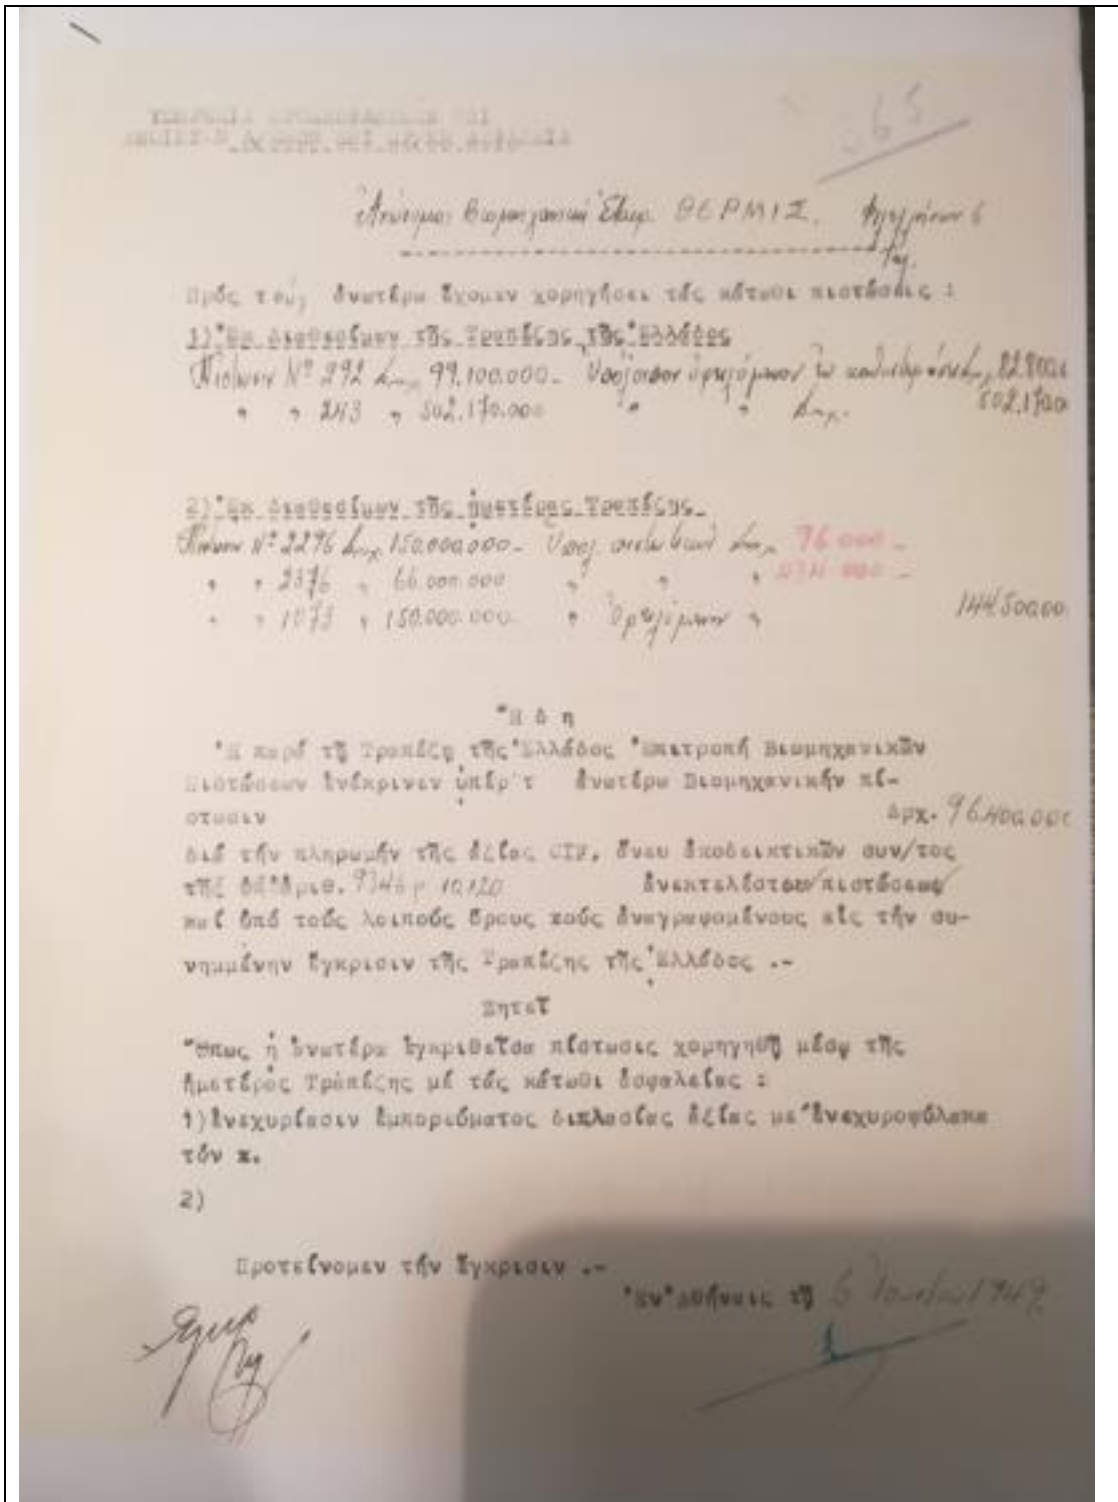 65
Ἀνώνυμος Βιομηχανική Ἑταιρ. ΘΕΡΜΙΣ. Φιλελλήνων 6
Πρός τούς ἀνωτέρω ἔχομεν χορηγήσει τάς κάτωθι πιστώσεις :
1) Ἐκ διαθεσίμων τῆς Τραπέζης τῆς Ἑλλάδος
Πίστωσιν Νο 292 Δρχ. 99.100.000.- Ὑπόλοιπον ὀφειλόμενον
" " 243 " 502.170.000 " " Δρχ.
2) Ἐκ διαθεσίμων τῆς ἡμετέρας Τραπέζης
Πίστωσιν Νο 2296 Δρχ. 150.000.000.- Ὑπολ. πιστωτικόν Δρχ. 96.000.-
" " 2376 " 66.000.000 " " "
" " 1073 " 150.000.000. " Ὀφειλόμενον "
Ἤ δ η
Ἡ παρά τῇ Τραπέζῃ τῆς Ἑλλάδος Ἐπιτροπή Βιομηχανικῶν
Πιστώσεων ἐνέκρινεν ὑπέρ τ ἀνωτέρω Βιομηχανικήν πί-
στωσιν Δρχ. 96.400.000
διά τήν πληρωμήν τῆς ἀξίας CIF, ἄνευ ἀποδεικτικῶν συν/τος
ἀριθ. 10.120 ἀνεκτελέστου πιστώσεως
καί ὑπό τούς λοιπούς ὅρους τούς ἀναγραφομένους εἰς τήν συ-
νημμένην ἔγκρισιν τῆς Τραπέζης τῆς Ἑλλάδος .-
Ζητεῖ
Ὅπως ἡ ἀνωτέρω ἐγκριθεῖσα πίστωσις χορηγηθῇ μέσῳ τῆς
ἡμετέρας Τραπέζης μέ τάς κάτωθι ἀσφαλείας :
1) Ἐνεχυρίασιν ἐμπορεύματος διπλασίας ἀξίας με ἐνεχυροφύλακα
τόν κ.
2)
Προτείνομεν τήν ἔγκρισιν .-
Ἐν Ἀθήναις τῇ 6 1949